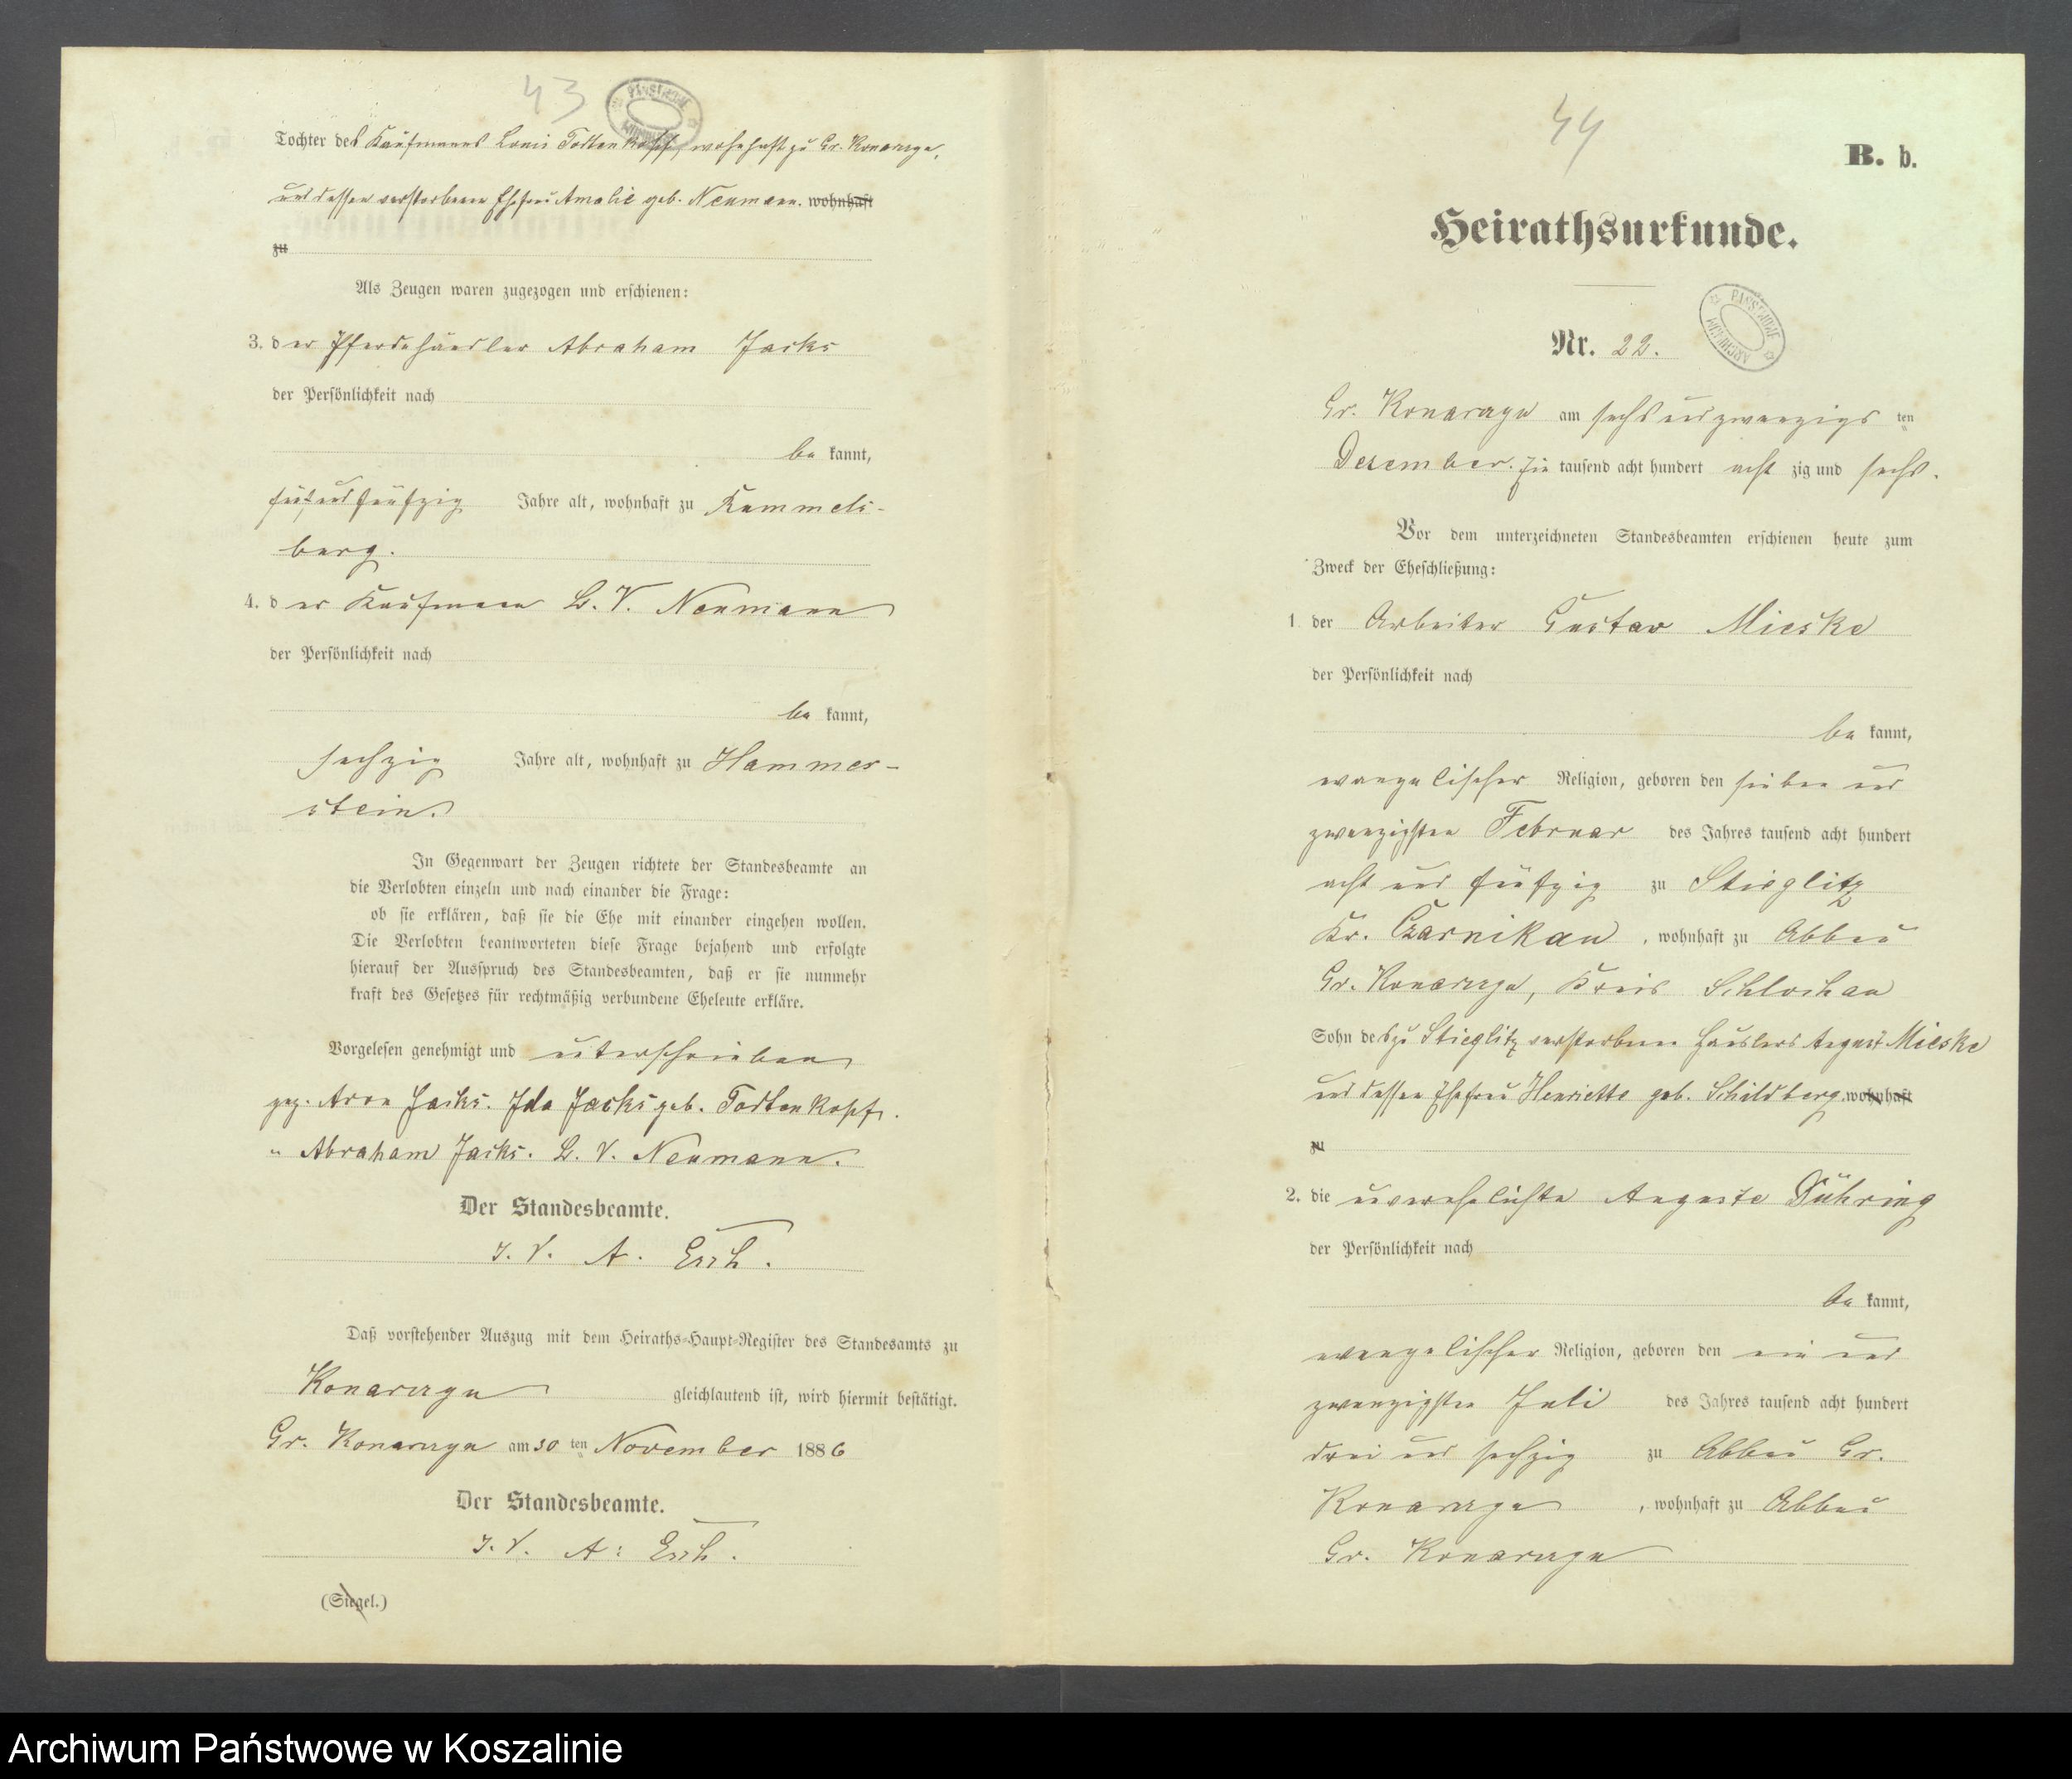 43
PAŃSTWOWE ARCHIWUM
Tochter des Kaufmanns Louis Todtenkopf, wohnhaft zu Gr. Konarczyn,
und dessen verstorbenen Ehefrau Amalie geb. Neumann. wohnhaft
zu
Als Zeugen waren zugezogen und erschienen:
3. der Pferdehändler Abraham Jacks
der Persönlichkeit nach
be kannt,
fünfundfünfzig Jahre alt, wohnhaft zu Rummels-
burg.
4. der Kaufmann L. V. Neumann
der Persönlichkeit nach
be kannt,
sechzig Jahre alt, wohnhaft zu Hammer-
stein.
In Gegenwart der Zeugen richtete der Standesbeamte an
die Verlobten einzeln und nach einander die Frage:
ob sie erklären, daß sie die Ehe mit einander eingehen wollen.
Die Verlobten beantworteten diese Frage bejahend und erfolgte
hierauf der Ausspruch des Standesbeamten, daß er sie nunmehr
kraft des Gesetzes für rechtmäßig verbundene Eheleute erkläre.
Vorgelesen genehmigt und unterschrieben
gez. Aron Jacks. Ida Jacks geb. Todtenkopf.
" Abraham Jacks. L. V. Neumann.
Der Standesbeamte.
I. V. A.
Daß vorstehender Auszug mit dem Heiraths-Haupt-Register des Standesamts zu
Konarczyn gleichlautend ist, wird hiermit bestätigt.
Gr. Konarczyn am 30 ten November 1886
Der Standesbeamte.
I. V. A.
(Siegel.)
44
B. b.
Heirathsurkunde.
PAŃSTWOWE ARCHIWUM
Nr. 22.
Gr. Konarczyn am sechsundzwanzigs ten
Dezember tausend acht hundert acht zig und sechs.
Vor dem unterzeichneten Standesbeamten erschienen heute zum
Zweck der Eheschließung:
1. der Arbeiter Gustav Mieske
der Persönlichkeit nach
be kannt,
evangelischer Religion, geboren den sieben und
zwanzigsten Februar des Jahres tausend acht hundert
acht und fünfzig zu Stieglitz
Kr. Czarnikau, wohnhaft zu Abbau
Gr. Konarczyn, Kreis Schlochau
Sohn des zu Stieglitz verstorbenen Häuslers August Mieske
und dessen Ehefrau Henriette geb. Schildberg. wohnhaft
zu
2. die unverehelichte Auguste Dühring
der Persönlichkeit nach
be kannt,
evangelischer Religion, geboren den ein und
zwanzigsten Juli des Jahres tausend acht hundert
drei und sechzig zu Abbau Gr.
Konarczyn, wohnhaft zu Abbau
Gr. Konarczyn
Archiwum Państwowe w Koszalinie